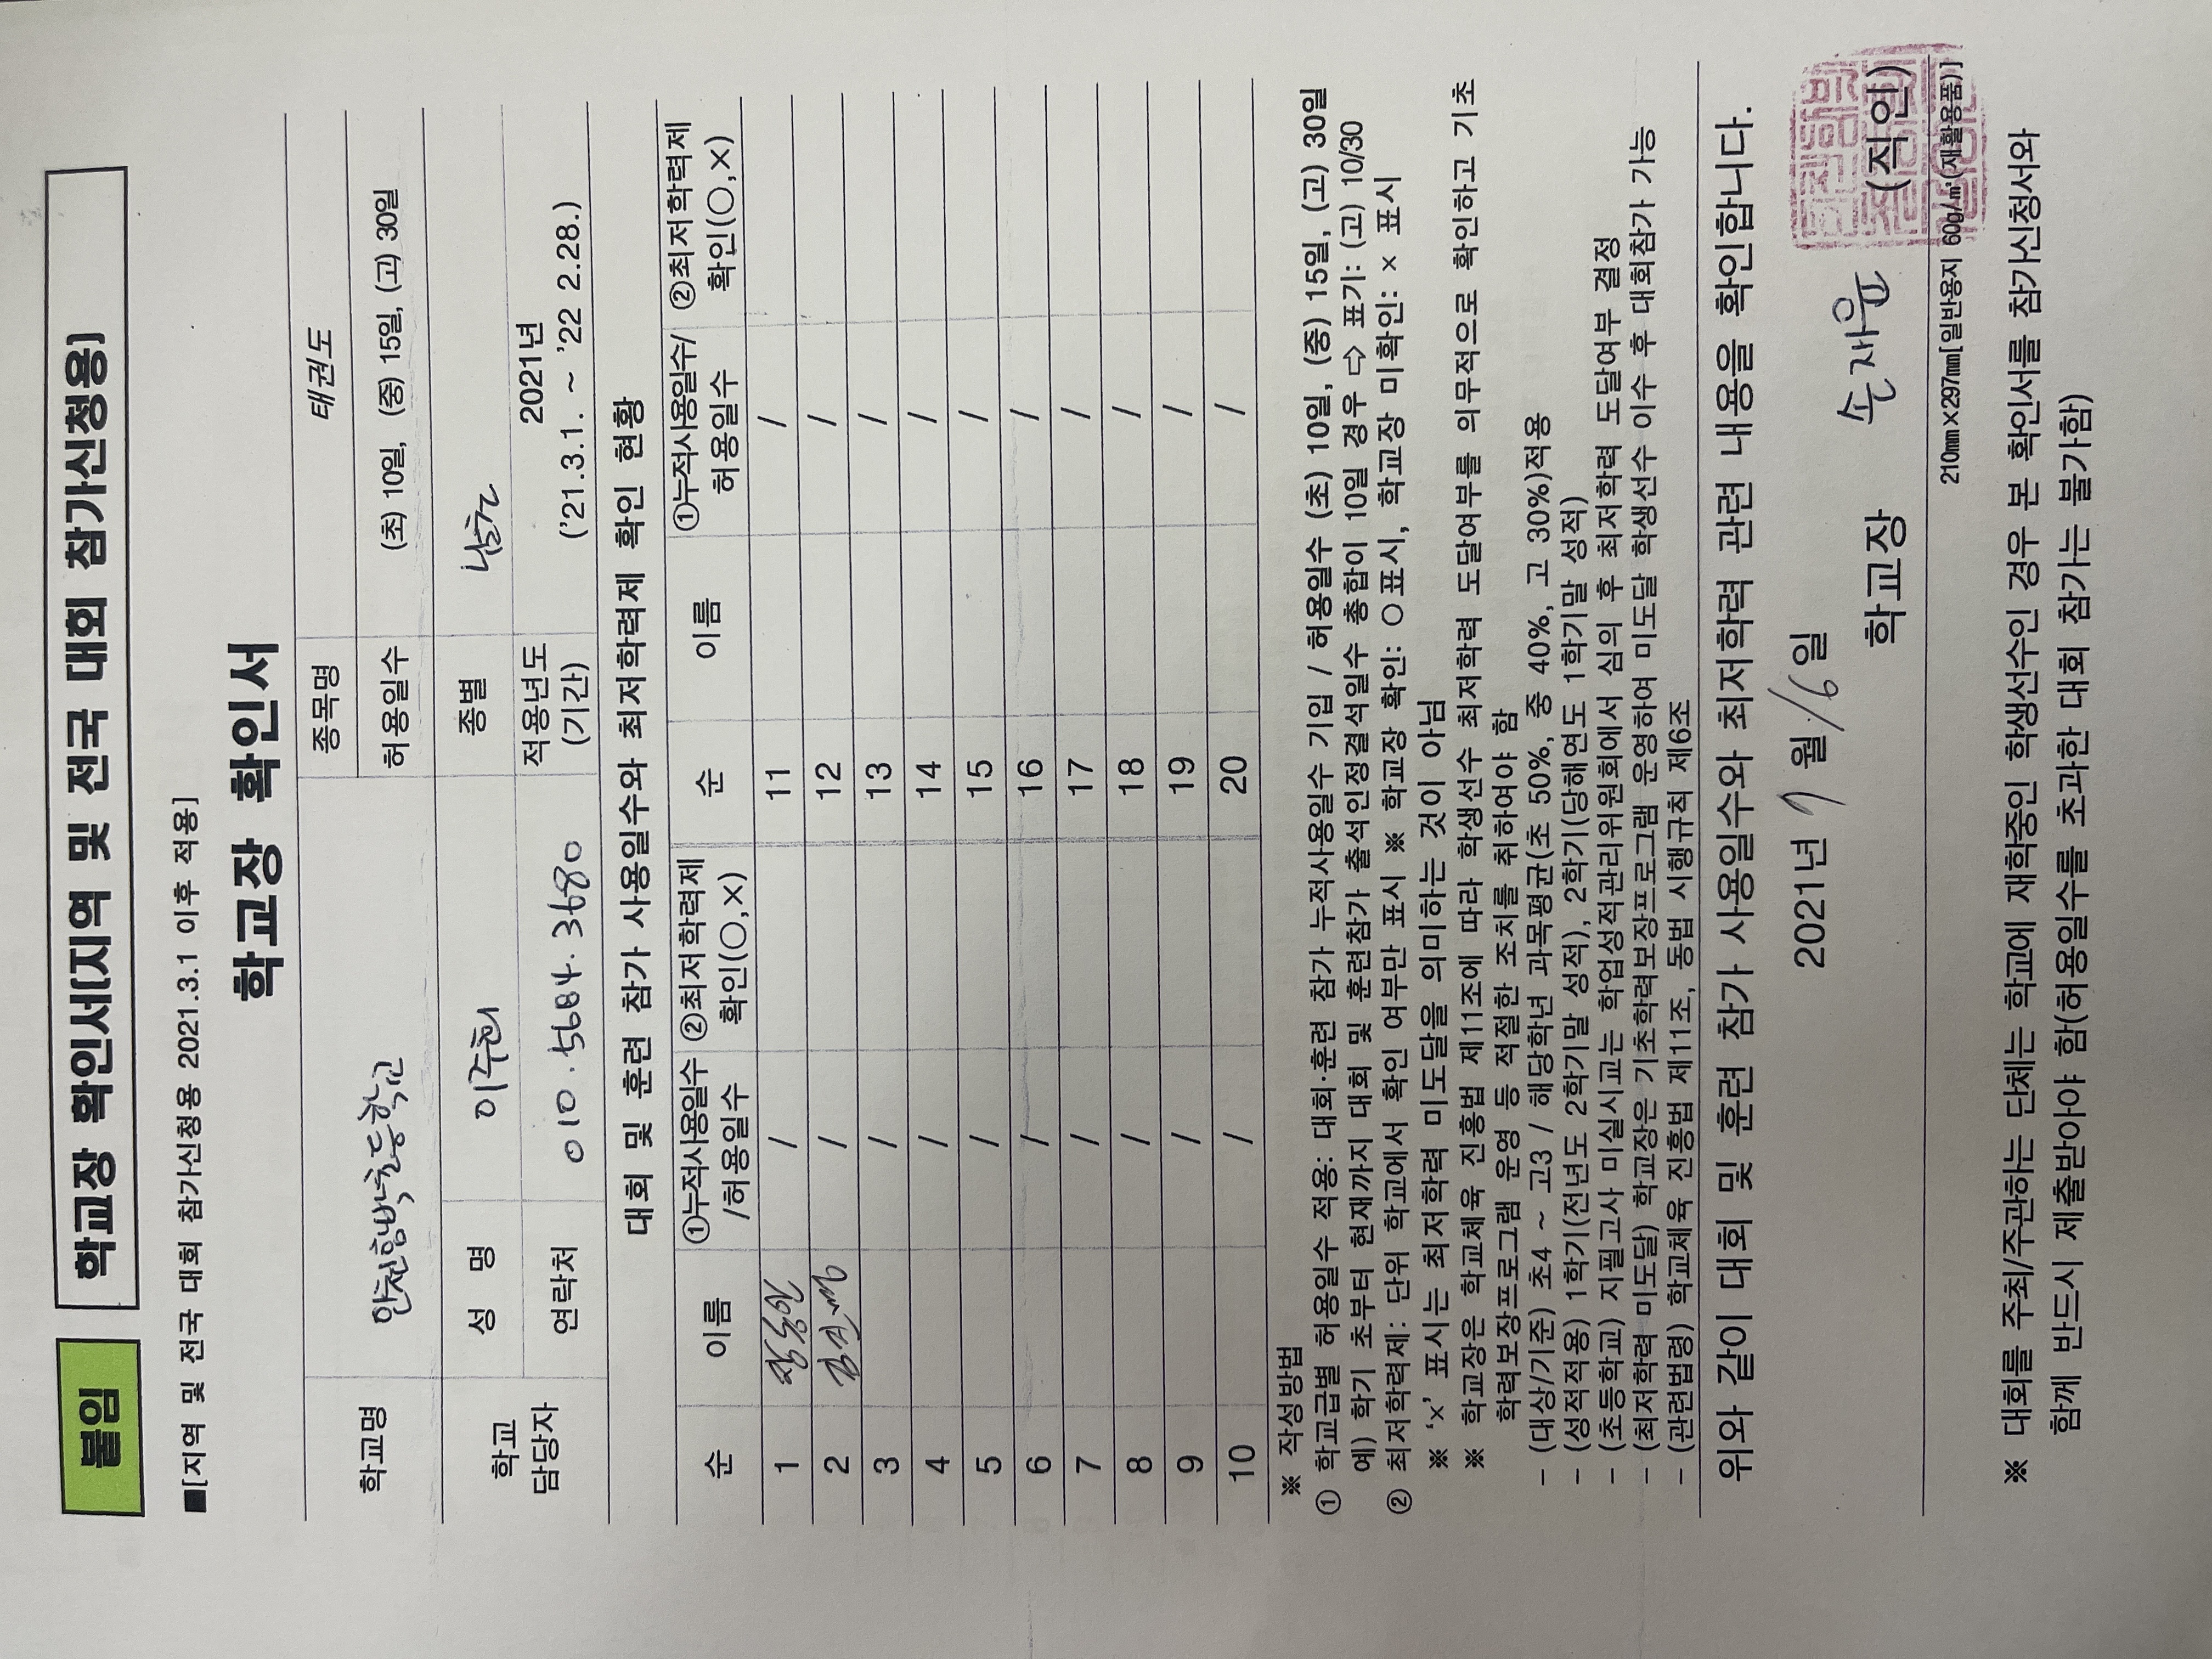 붙임 학교장 확인서[지역 및 전국 대회 참가신청용]
■[지역 및 전국 대회 참가신청용 2021.3.1 이후 적용]
학교장 확인서
학교명 안천함박초등학교 종목명 태권도
허용일수 (초) 10일, (중) 15일, (고) 30일
학교 담당자 성 명 이주희 종별 남초
연락처 010.5684.3680 적용년도 (기간) 2021년 ('21.3.1. ~ '22 2.28.)
대회 및 훈련 참가 사용일수와 최저학력제 확인 현황
순 이름 ①누적사용일수/허용일수 ②최저학력제 확인(○,×) 순 이름 ①누적사용일수/허용일수 ②최저학력제 확인(○,×)
1 / 11 /
2 / 12 /
3 / 13 /
4 / 14 /
5 / 15 /
6 / 16 /
7 / 17 /
8 / 18 /
9 / 19 /
10 / 20 /
※ 작성방법
① 학교급별 허용일수 적용: 대회·훈련 참가 누적사용일수 기입 / 허용일수 (초) 10일, (중) 15일, (고) 30일
예) 학기 초부터 현재까지 대회 및 훈련참가 출석인정결석일수 총합이 10일 경우 ⇨ 표기: (고) 10/30
② 최저학력제: 단위 학교에서 확인 여부만 표시 ※ 학교장 확인: ○표시, 학교장 미확인: × 표시
※ '×' 표시는 최저학력 미도달을 의미하는 것이 아님
※ 학교장은 학교체육 진흥법 제11조에 따라 학생선수 최저학력 도달여부를 의무적으로 확인하고 기초
학력보장프로그램 운영 등 적절한 조치를 취하여야 함
- (대상/기준) 초4 ~ 고3 / 해당학년 과목평균(초 50%, 중 40%, 고 30%)적용
- (성적적용) 1학기(전년도 2학기말 성적), 2학기(당해연도 1학기말 성적)
- (초등학교) 지필고사 미실시교는 학업성적관리위원회에서 심의 후 최저학력 도달여부 결정
- (최저학력 미도달) 학교장은 기초학력보장프로그램 운영하여 미도달 학생선수 이수 후 대회참가 가능
- (관련법령) 학교체육 진흥법 제11조, 동법 시행규칙 제6조
위와 같이 대회 및 훈련 참가 사용일수와 최저학력 관련 내용을 확인합니다.
2021년 9월 16일
학교장 손재윤 (직인)
210㎜×297㎜[일반용지 60g/㎡(재활용품)]
※ 대회를 주최/주관하는 단체는 학교에 재학중인 학생선수인 경우 본 확인서를 참가신청서와
함께 반드시 제출받아야 함(허용일수를 초과한 대회 참가는 불가함)